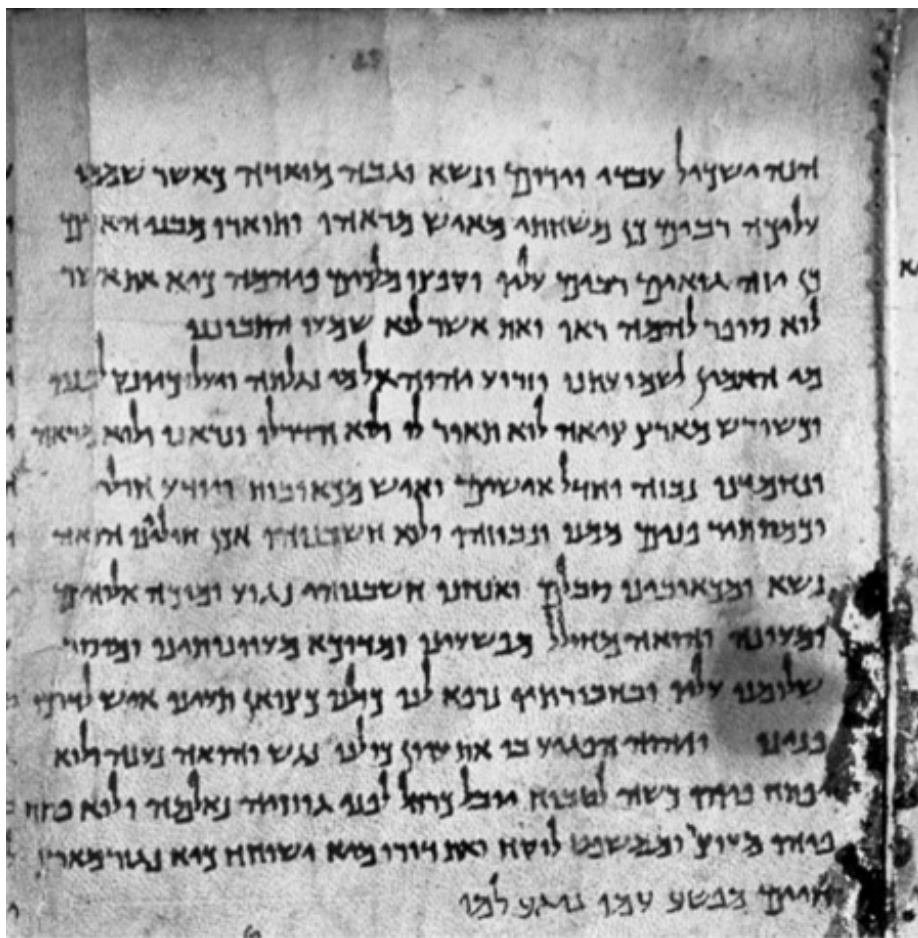 הנה ישכיל עבדי וירום ונשא וגבה מואדה כאשר שממו
עליכה רבים כן משחתי מאיש מראהו ותוארו מבני האדם
כן יזה גואים רבים עליו וקפצו מלכים פיהמה כיא את אשר
לוא סופר להמה ראו ואת אשר לוא שמעו התבוננו
מי האמין לשמועתנו וזרוע יהוה אל מי נגלתה ויעל כיונק לפניו
וכשורש מארץ ציאה לוא תואר לו ולוא הדר לו ונראנו ולוא מראה
ונחמדנו נבזה וחדל אישים ואיש מכאובות ויודע חולי
וכמסתיר פנים ממנו ונבוזהו ולוא חשבנוהו אכן חוליינו הואה
נשא ומכאובינו סבלם ואנחנו חשבנוהו נגוע ומוכה אלוהים
ומעונה והואה מחולל מפשעינו ומדוכא מעוונותינו ומוסר
שלומנו עליו ובחבורתיו נרפא לנו כולנו כצואן תעינו איש לדרכו
פנינו ויהוה הפגיע בו את עוון כולנו נגש והואה נענה ולוא
יפתח פיהו כשה לטבוח יובל כרחל לפני גוזזיה נאלמה ולוא פתח
פיהו מעוצר וממשפט לוקח ואת דורו מיא ישוחח כיא נגזר מארץ
חיים מפשע עמו נוגע למו